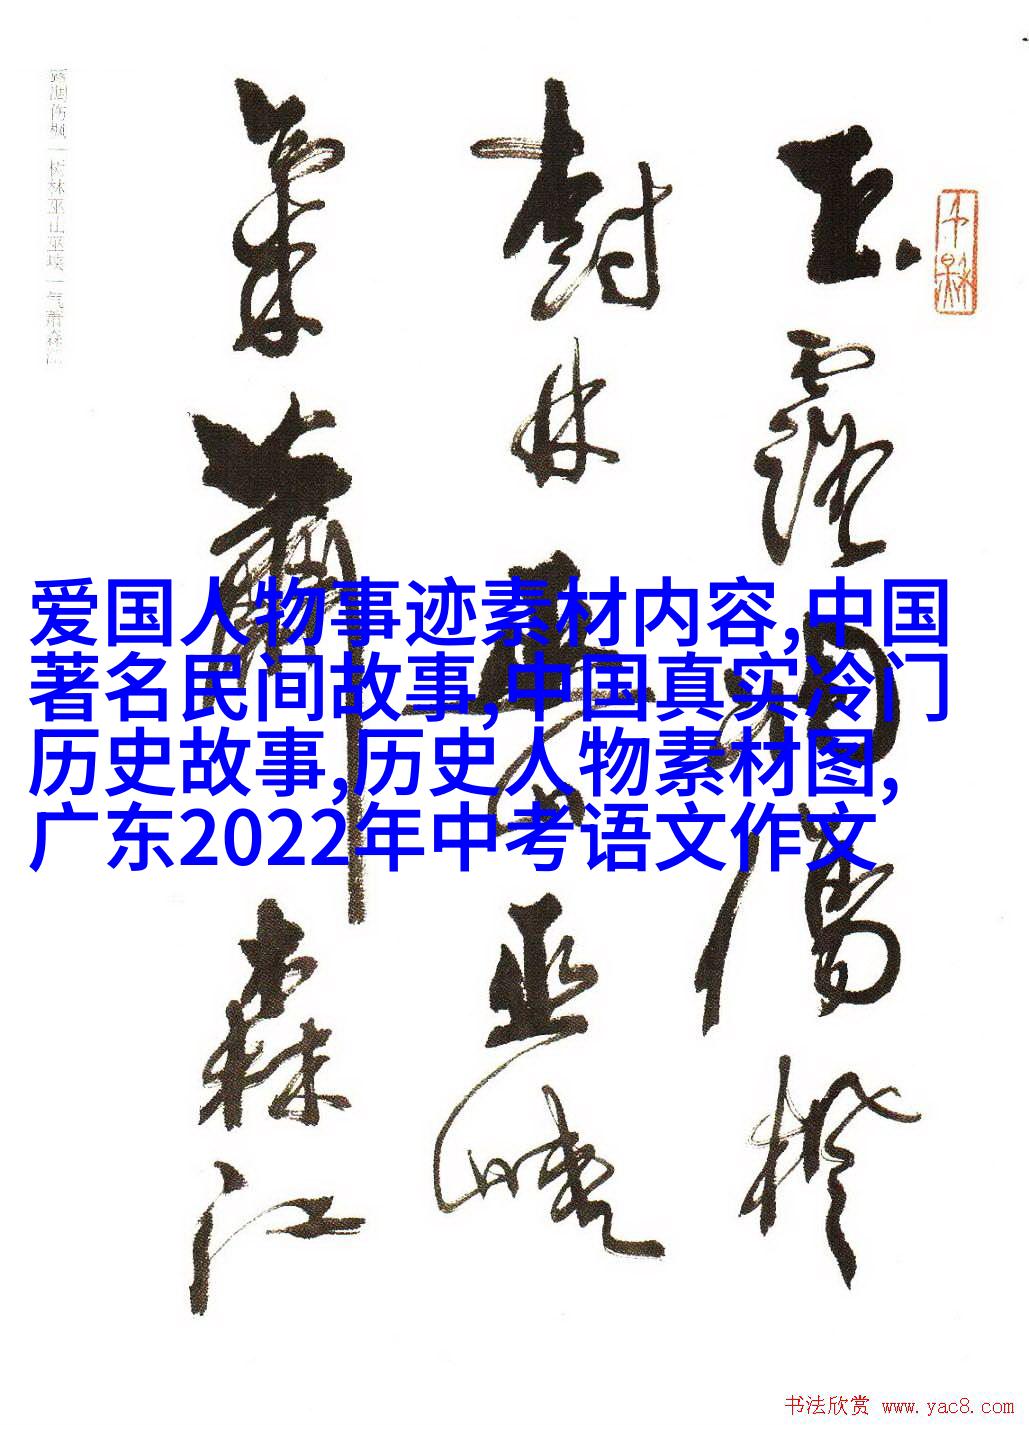 玉露凋伤枫
树林巫山巫峡
气萧森江
爱国人物事迹素材内容,中国
著名民间故事,中国真实冷门
历史故事,历史人物素材图,
广东2022年中考语文作文
书法欣赏 www.yac8.com